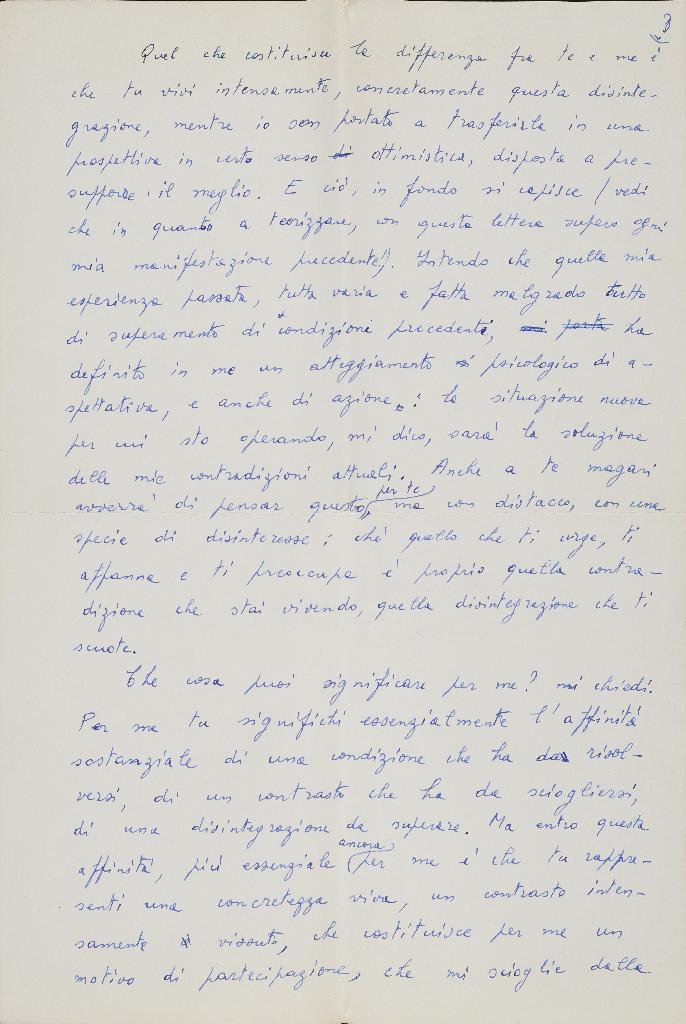 3
Quel che costituisce la differenza fra te e me è
che tu vivi intensamente, concretamente questa disinte-
grazione, mentre io son portato a trasferirla in una
prospettiva in certo senso di ottimistica, disposta a pre-
supporre il meglio. E ciò, in fondo si capisce (vedi
che in quanto a teorizzare, con questa lettera supero ogni
mia manifestazione precedente!). Intendo che quella mia
esperienza passata, tutta varia e fatta malgrado tutto
di superamento di condizioni precedenti, mi porta ha
definito in me un atteggiamento psicologico di a-
spettativa, e anche di azione: la situazione nuova
per cui sto operando, mi dico, sarà la soluzione
delle mie contradizioni attuali. Anche a te magari
avverrà di pensar questo per te, ma con distacco, con una
specie di disinteresse; ché quello che ti urge, ti
affanna e ti preoccupa è proprio quella contra-
dizione che stai vivendo, quella disintegrazione che ti
scuote.
Che cosa puoi significare per me? mi chiedi.
Per me tu significhi essenzialmente l'affinità
sostanziale di una condizione che ha da risol-
versi, di un contrasto che ha da sciogliersi,
di una disintegrazione da superare. Ma entro questa
affinità, più essenziale ancora per me è che tu rappre-
senti una concretezza viva, un contrasto inten-
samente vissuto, che costituisce per me un
motivo di partecipazione, che mi scioglie dalla